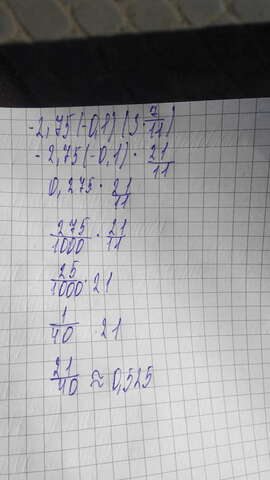 -2,75(-0,1)(3·7/11)
-2,75(-0,1)·21/11
0,275·21/11
275/1000·21/11
25/1000·21
1/40 21
21/40≈0,525